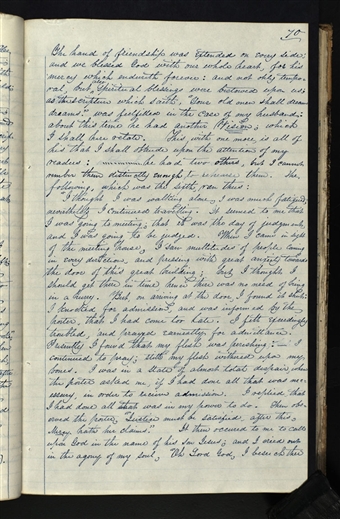 70
The hand of friendship was extended on every side,
and we blessed God with our whole heart, for his
mercy which endureth forever: and not only tempo-
ral, but Spiritual blessings were bestowed upon us;
as the scripture which saith, "Your old men shall dream
dreams." was fulfilled in the case of my husband;
about this time he had another Vision, which
I shall here relate. This with one more is all of
his that I shall obtrude upon the attention of my
readers; he had two others, but I cannot
remember them distinctly enough to rehearse them. The
following, which was the sixth, ran thus:
"I thought I was walking alone, I was much fatigued,
nevertheless I continued travelling. It seemed to me that
I was going to meeting, that it was the day of judgement,
and I was going to be judged. When I came in sight
of the meeting house, I saw multitudes of people coming
in every direction, and pressing with great anxiety towards
the door of this great building; but I thought I
should get there in time hence there was no need of being
in a hurry. But on arriving at the door, I found it shut.
I knocked for admission, and was informed by the
porter, that I had come too late. I felt exceedingly
troubled, and prayed earnestly for admittance.
Presently I found that my flesh was perishing; I
continued to pray; still my flesh withered upon my
bones. I was in a state of almost total despair, when
the porter asked me, if I had done all that was nec-
essary, in order to receive admission. I replied that
I had done all that was in my power to do. Then ob-
served the porter, Justice must be satisfied, after this,
Mercy hath her claims. It then occured to me to call
upon God in the name of his Son Jesus; and I cried out
in the agony of my soul, Oh Lord God, I beseech thee